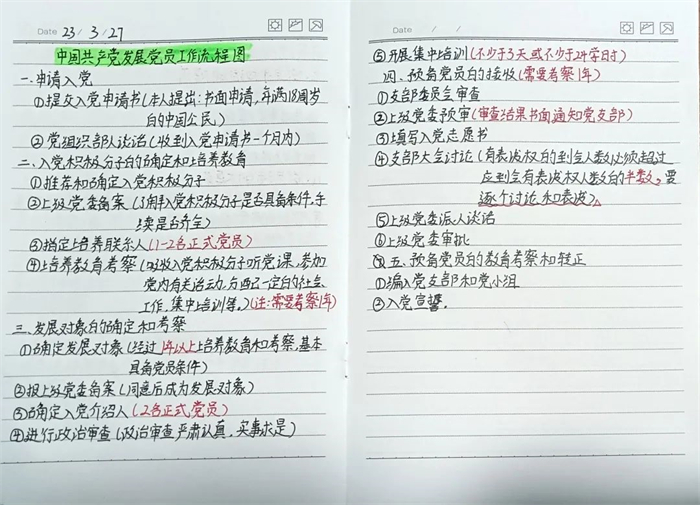 Date 23 / 3 / 27
中国共产党发展党员工作流程图
一、申请入党
①提交入党申请书(本人提出:书面申请,年满18周岁
的中国公民)
②党组织部人谈话(收到入党申请书一个月内)
二、入党积极分子的确定和培养教育
①推荐和确定入党积极分子
②上级党委备案(入党积极分子是否具备条件,手
续是否齐全)
③指定培养联系人(1-2名正式党员)
④培养教育考察(吸收入党积极分子听党课,参加
党内有关活动,分配一定的社会
工作,集中培训等。)(注:需要考察1年)
三、发展对象的确定和考察
①确定发展对象(经过1年以上培养教育和考察,基本
具备党员条件)
②报上级党委备案(同意后成为发展对象)
③确定入党介绍人(2名正式党员)
④进行政治审查(政治审查严肃认真,实事求是)
Date / /
⑤开展集中培训(不少于3天或不少于24学时)
四、预备党员的接收(需要考察1年)
①支部委员会审查
②上级党委预审(审查结果书面通知党支部)
③填写入党志愿书
④支部大会讨论(有表决权的到会人数必须超过
应到会有表决权人数的半数。要
逐个讨论和表决)
⑤上级党委派人谈话
⑥上级党委审批
五、预备党员的教育考察和转正
①编入党支部和党小组
②入党宣誓。